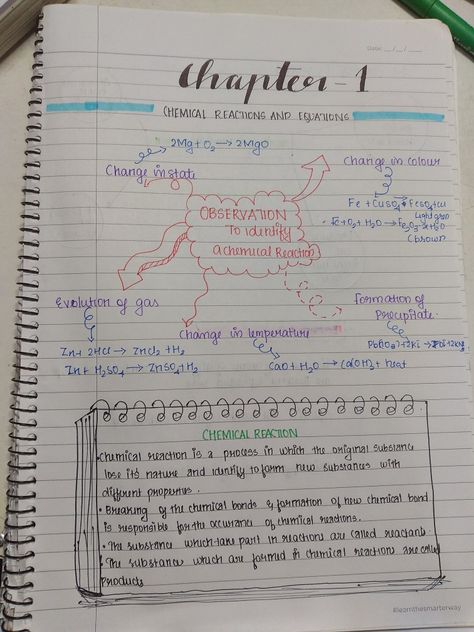 Date: __/__/__
Chapter-1
CHEMICAL REACTIONS AND EQUATIONS
2Mg + O₂ → 2MgO
Change in state
Change in colour
Fe + CuSO₄ → FeSO₄ + Cu
Light green
OBSERVATION
To identify
a chemical Reaction
Fe + O₂ + H₂O → Fe₂O₃
(brown)
Evolution of gas
Formation of
Precipitate.
Change in temperature
Zn + 2HCl → ZnCl₂ + H₂
Zn + H₂SO₄ → ZnSO₄ + H₂
CaO + H₂O → Ca(OH)₂ + heat
CHEMICAL REACTION
• Chemical reaction is a process in which the original substance
lose its nature and identify to form new substances with
different properties.
• Breaking of the chemical bonds & formation of new chemical bond
is responsible for the occurance of chemical reactions.
• The substance which take part in reactions are called reactant.
• The substance which are formed in chemical reaction are called
products
#learnthesmarterway